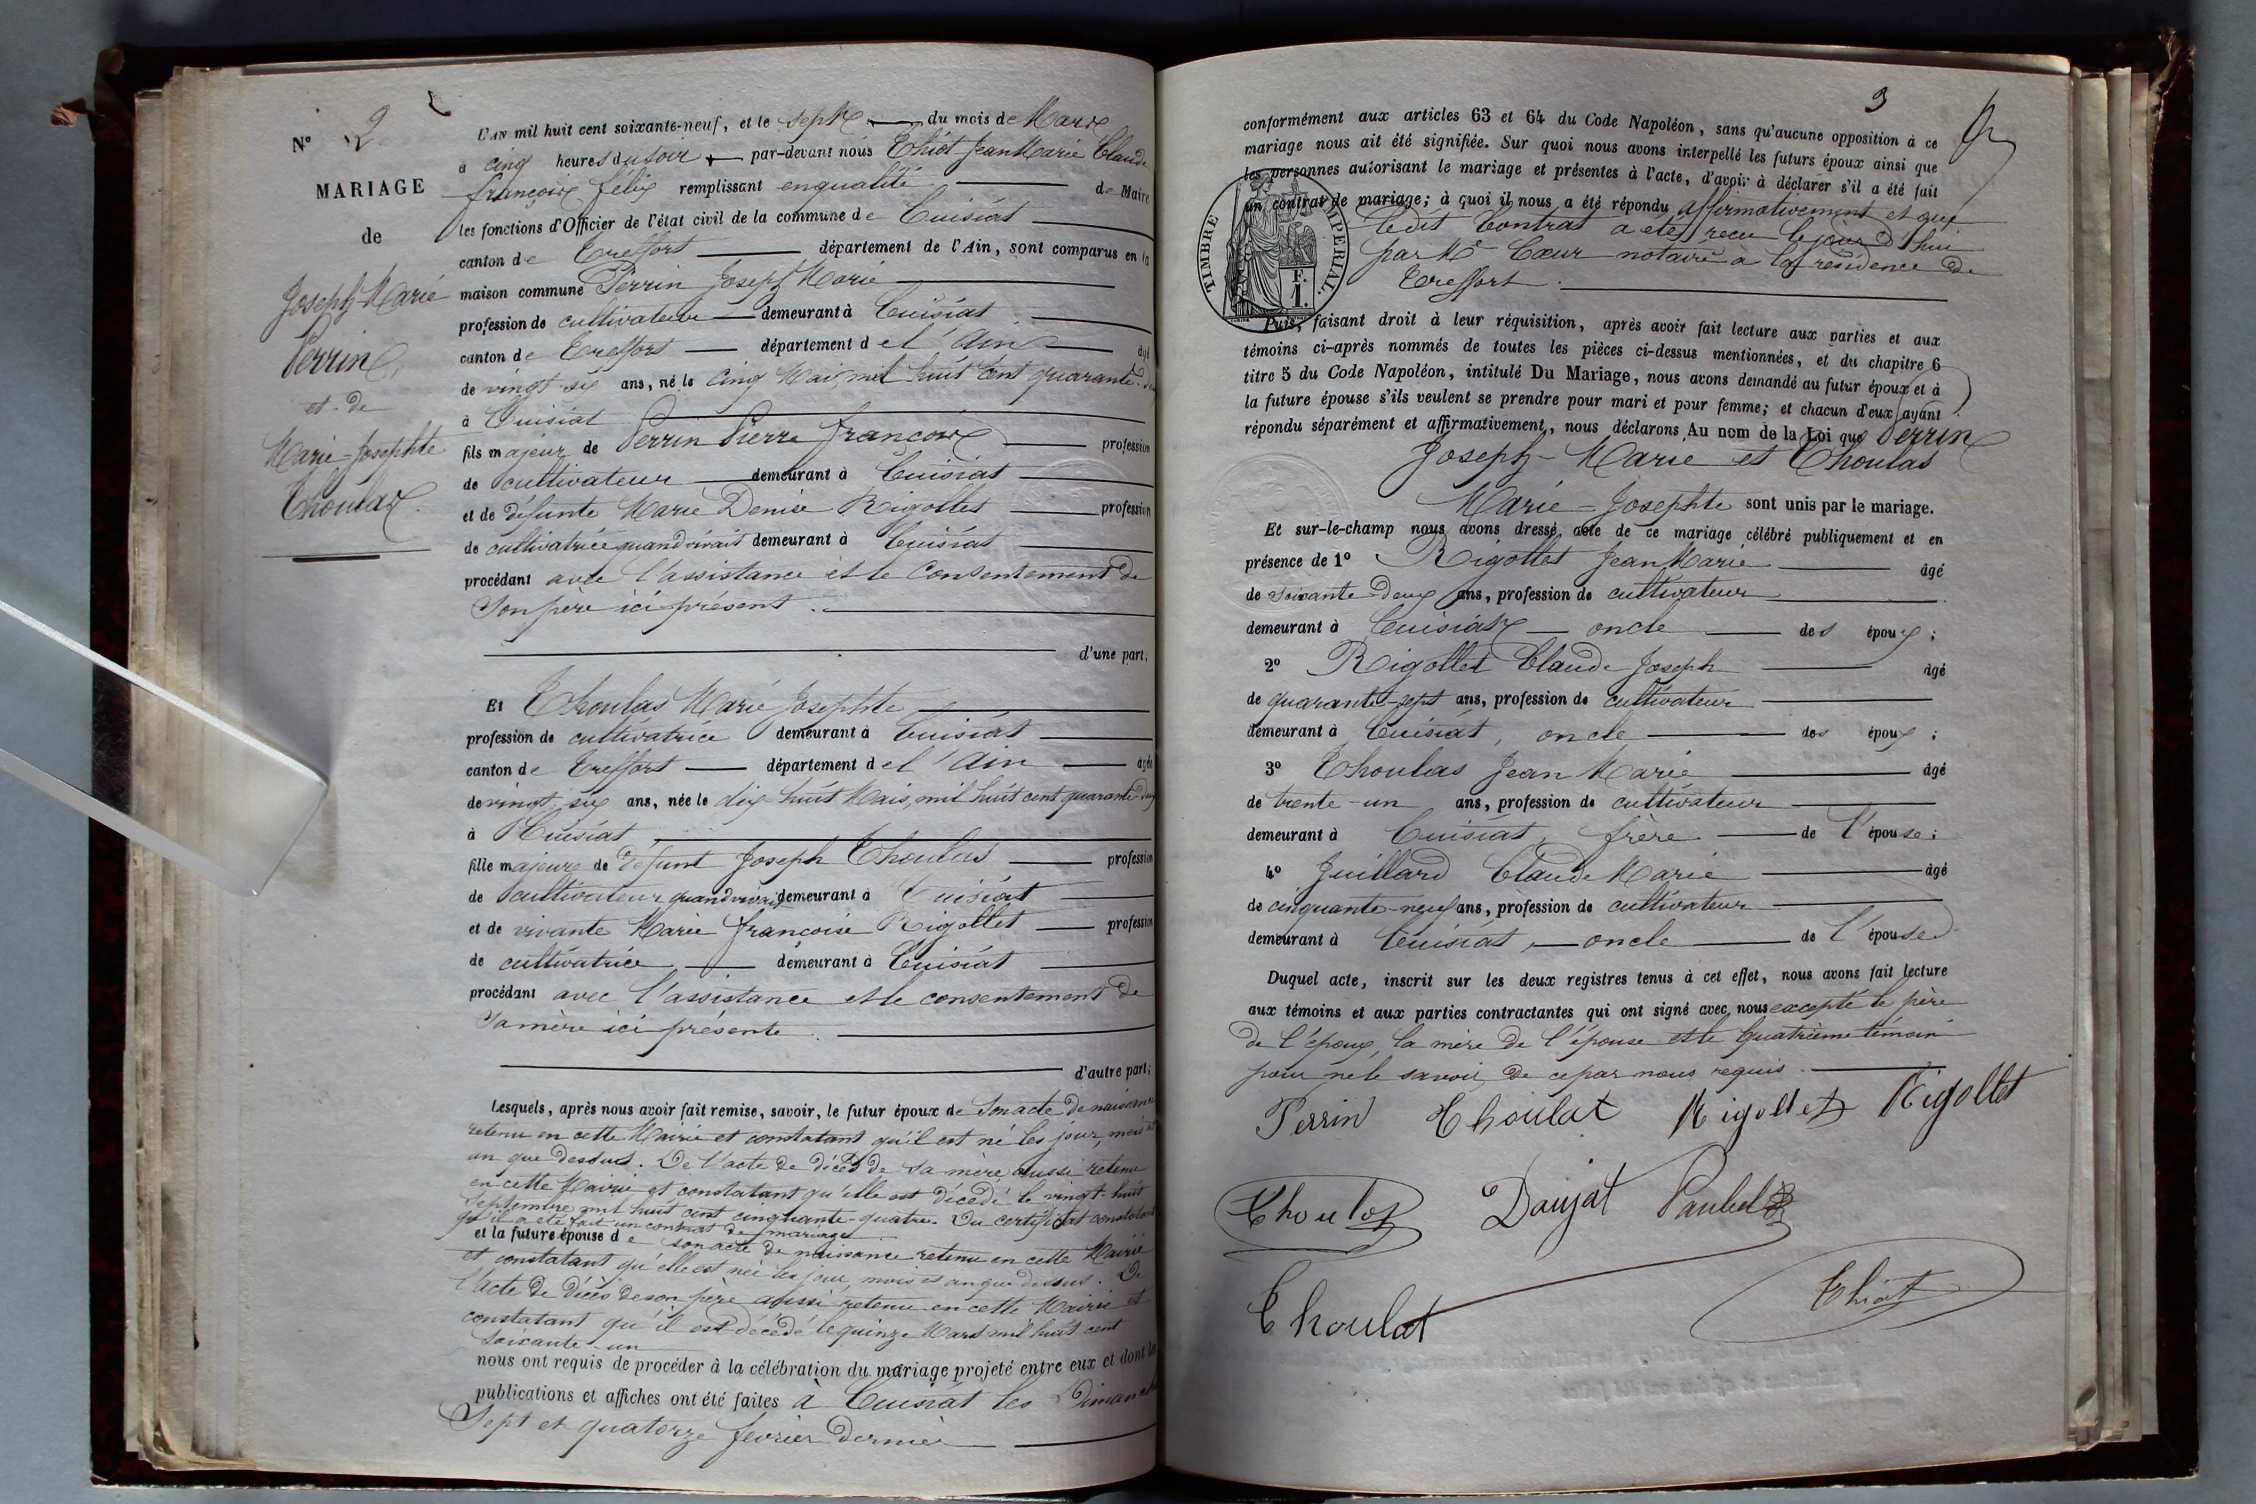 N° 2
MARIAGE
de
Joseph-Marie
Perrin
et de
Marie-Josephte
Thoulas
L'AN mil huit cent soixante-neuf, et le sept du mois de Mars
à cinq heures du soir par-devant nous Thiot Jean Marie Claude
françois félix remplissant en qualité de Maire
les fonctions d'Officier de l'état civil de la commune de Cuisiat
canton de Treffort département de l'Ain, sont comparus en la
maison commune Perrin Joseph Marie
profession de cultivateur demeurant à Cuisiat
canton de Treffort département de l'Ain âgé
de vingt six ans, né le cinq Mai mil huit cent quarante
à Cuisiat
fils majeur de Perrin Pierre françois profession
de cultivateur demeurant à Cuisiat
et de défunte Marie Denise Rigollet profession
de cultivatrice quand vivait demeurant à Cuisiat
procédant avec l'assistance et le consentement de
Son père ici présent.
d'une part,
Et Thoulas Marie Josephte
profession de cultivatrice demeurant à Cuisiat
canton de Treffort département de l'Ain âgée
de vingt six ans, née le dix huit Mars mil huit cent quarante
à Cuisiat
fille majeure de défunt Joseph Thoulas profession
de cultivateur quand vivait demeurant à Cuisiat
et de vivante Marie françoise Rigollet profession
de cultivatrice demeurant à Cuisiat
procédant avec l'assistance et le consentement de
Sa mère ici présente.
d'autre part;
Lesquels, après nous avoir fait remise, savoir, le futur époux de Son acte de naissance
retenu en cette Mairie et constatant qu'il est né les jour, mois et
an que dessus. De l'acte de décès de sa mère aussi retenu
en cette Mairie et constatant qu'elle est décédé le vingt-huit
Septembre mil huit cent cinquante-quatre. Du certificat constatant
qu'il a été fait un contrat de mariage
et la future épouse de son acte de naissance retenu en cette Mairie
et constatant qu'elle est née les jour, mois et an que dessus. De
l'acte de décès de son père aussi retenu en cette Mairie et
constatant qu'il est décédé le quinze Mars mil huit cent
soixante-un
nous ont requis de procéder à la célébration du mariage projeté entre eux et dont les
publications et affiches ont été faites à Cuisiat les Dimanches
Sept et quatorze février dernier
3
conformément aux articles 63 et 64 du Code Napoléon, sans qu'aucune opposition à ce
mariage nous ait été signifiée. Sur quoi nous avons interpellé les futurs époux ainsi que
les personnes autorisant le mariage et présentes à l'acte, d'avoir à déclarer s'il a été fait
un contrat de mariage; à quoi il nous a été répondu affirmativement et que
ledit Contrat a été reçu le jour d'hui
par Me Cœur notaire à la résidence de
Treffort.
TIMBRE IMPERIAL
F.
1.
Puis, faisant droit à leur réquisition, après avoir fait lecture aux parties et aux
témoins ci-après nommés de toutes les pièces ci-dessus mentionnées, et du chapitre 6
titre 5 du Code Napoléon, intitulé Du Mariage, nous avons demandé au futur époux et à
la future épouse s'ils veulent se prendre pour mari et pour femme; et chacun d'eux ayant
répondu séparément et affirmativement, nous déclarons Au nom de la Loi que Perrin
Joseph-Marie et Thoulas
Marie-Josephte sont unis par le mariage.
Et sur-le-champ nous avons dressé acte de ce mariage célébré publiquement et en
présence de 1° Rigollet Jean Marie âgé
de soixante-deux ans, profession de cultivateur
demeurant à Cuisiat oncle des époux;
2° Rigollet Claude Joseph âgé
de quarante-sept ans, profession de cultivateur
demeurant à Cuisiat, oncle des époux;
3° Thoulas Jean Marie âgé
de trente-un ans, profession de cultivateur
demeurant à Cuisiat, frère de l'épouse;
4° Juillard Claude Marie âgé
de cinquante-neuf ans, profession de cultivateur
demeurant à Cuisiat, oncle de l'épouse
Duquel acte, inscrit sur les deux registres tenus à cet effet, nous avons fait lecture
aux témoins et aux parties contractantes qui ont signé avec nous excepté le père
de l'époux, la mère de l'épouse et le quatrième témoin
pour ne le savoir de ce par nous requis.
Perrin Thoulat Rigollet Rigollet
Thoulas Daujat Paubel
Thoulat Thiot